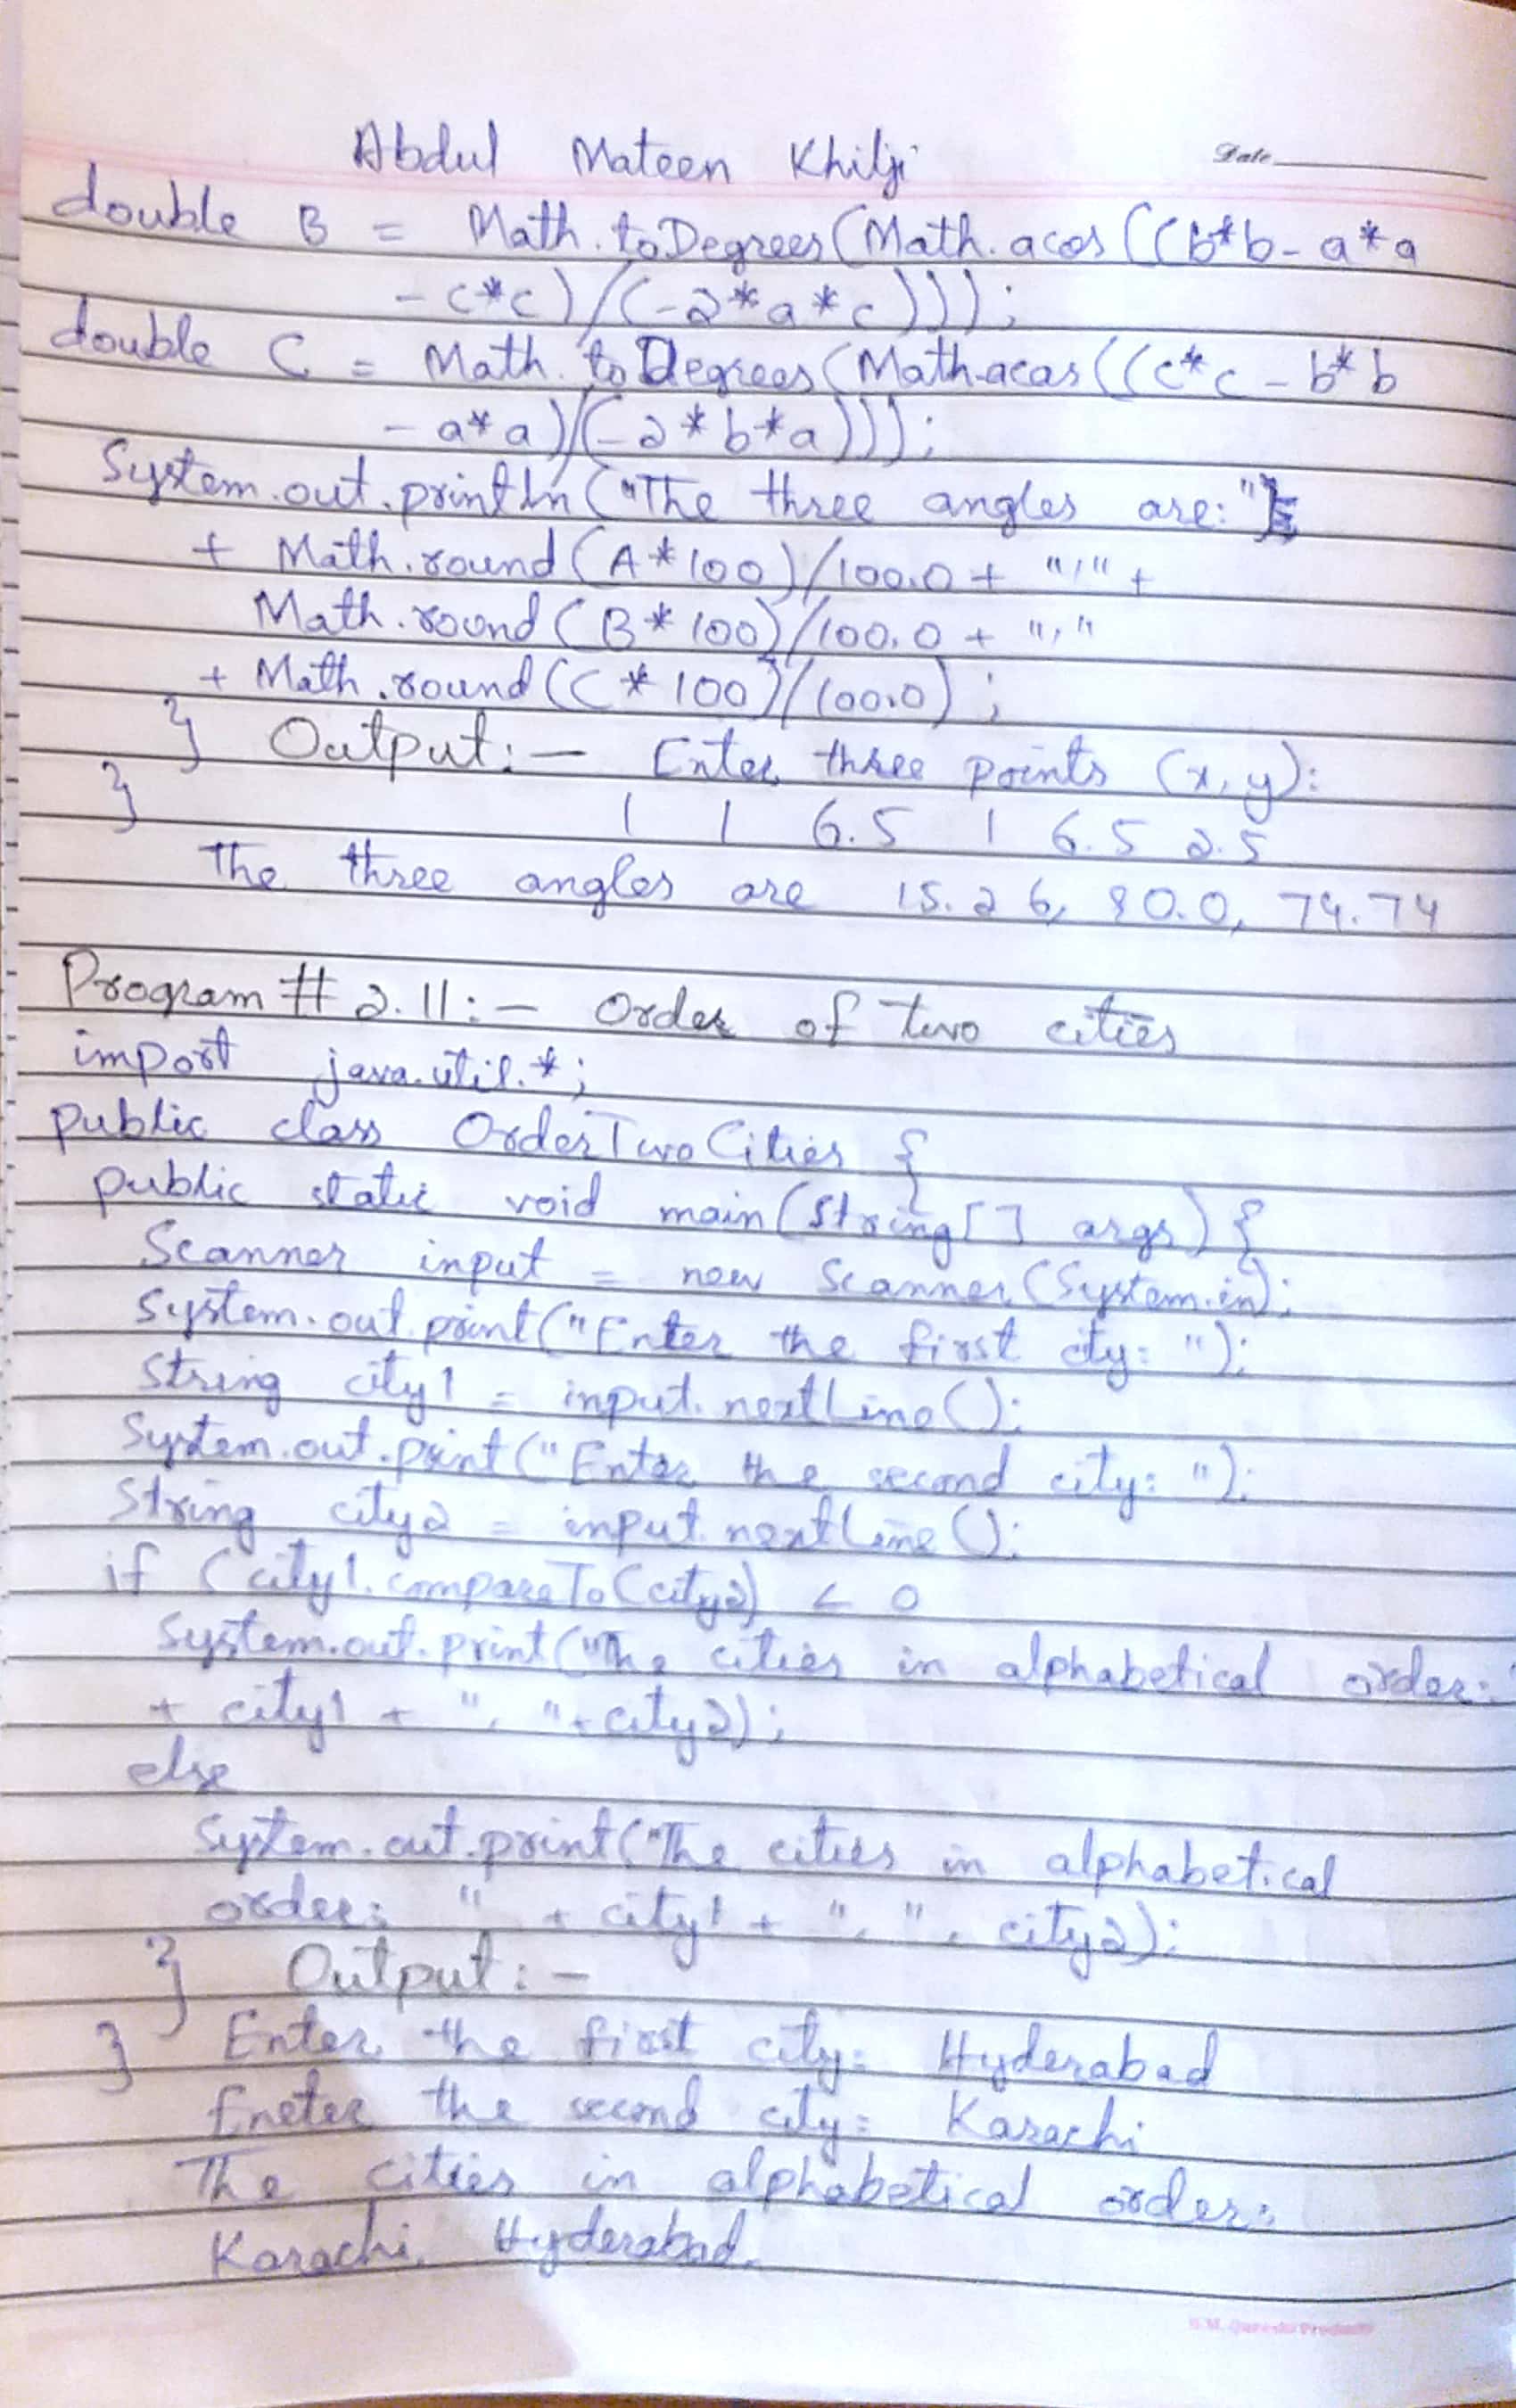 Abdul Mateen Khilji
Date
double B = Math.toDegrees(Math.acos((b*b-a*a
-c*c)/(-2*a*c)));
double C = Math.toDegrees(Math.acas((c*c-b*b
-a*a)/(-2*b*a)));
System.out.println("The three angles are:"
+ Math.round(A*100)/100.0 + "," +
Math.round(B*100)/100.0 + ","
+ Math.round(C*100)/100.0);
} Output:- Enter three points (x,y):
} 1 1 6.5 1 6.5 2.5
The three angles are 15.26, 90.0, 74.74
Program # 2.11:- Order of two cities
import java.util.*;
public class OrderTwoCities {
public static void main(String[] args) {
Scanner input = new Scanner(System.in);
System.out.print("Enter the first city: ");
String city1 = input.nextLine();
System.out.print("Enter the second city: ");
String city2 = input.nextLine();
if (city1.compareTo(city2) < 0
System.out.print("The cities in alphabetical order:"
+ city1 + ", "+city2);
else
System.out.print("The cities in alphabetical
order: " + city1 + ", ", city2);
} Output:-
} Enter the first city: Hyderabad
Eneter the second city: Karachi
The cities in alphabetical order:
Karachi, Hyderabad.